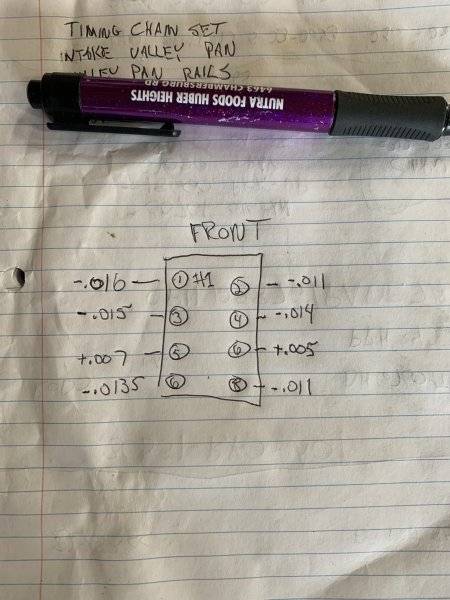 TIMING CHAIN SET
INTAKE VALLEY PAN
VALLEY PAN RAILS
6463 CHAMBERSBURG RD
NUTRA FOODS HUBER HEIGHTS
FRONT
-.016 — ① #1 ② — -.011
-.015 — ③ ④ — -.014
+.007 — ⑤ ⑥ — +.005
-.0135 ⑥ ⑧ — -.011